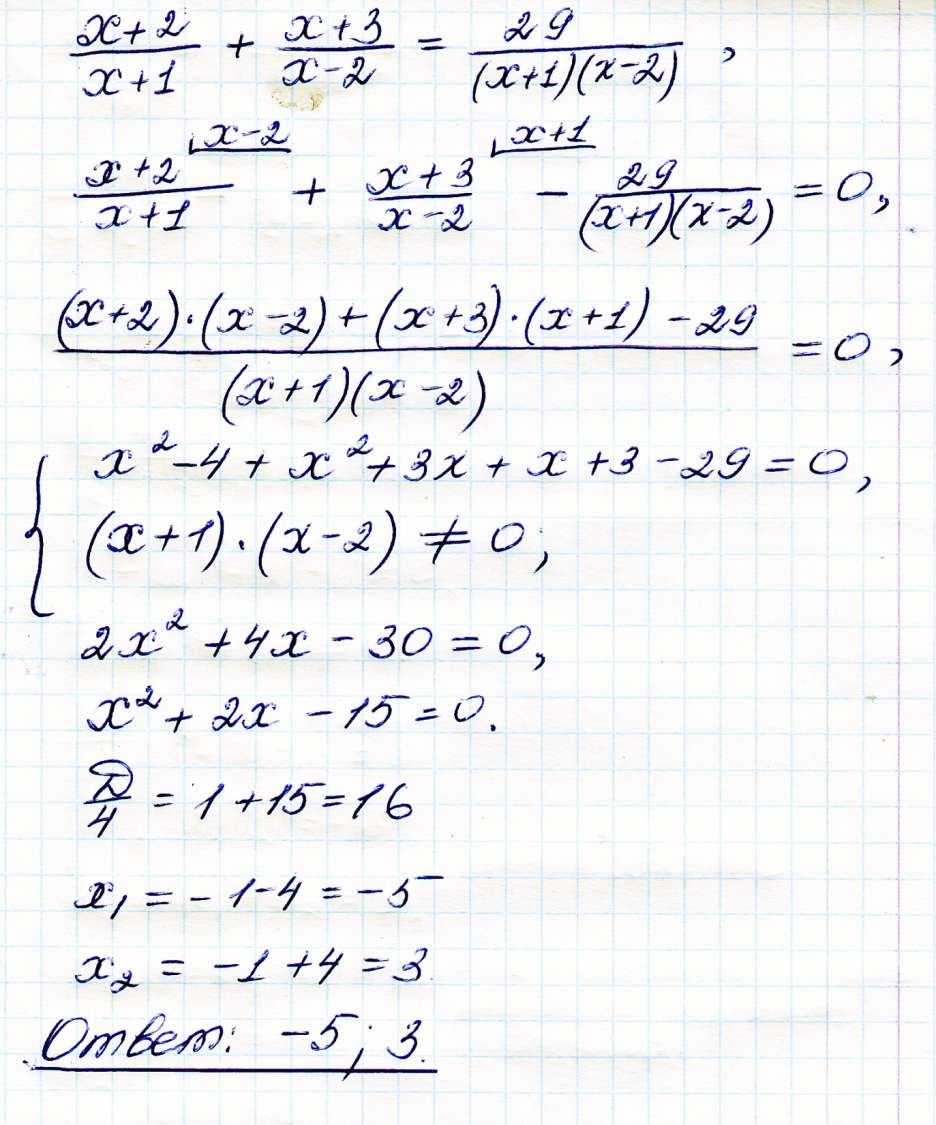 (x+2)/(x+1) + (x+3)/(x-2) = 29/((x+1)(x-2)),
(x+2)/(x+1) ⌊x-2 + (x+3)/(x-2) ⌊x+1 - 29/((x+1)(x-2)) = 0,
((x+2)·(x-2)+(x+3)·(x+1)-29)/((x+1)(x-2)) = 0,
{ x²-4+x²+3x+x+3-29=0,
(x+1)·(x-2) ≠ 0;
2x²+4x-30=0,
x²+2x-15=0.
D/4 = 1+15=16
x₁ = -1-4 = -5
x₂ = -1+4 = 3
Ответ: -5; 3.